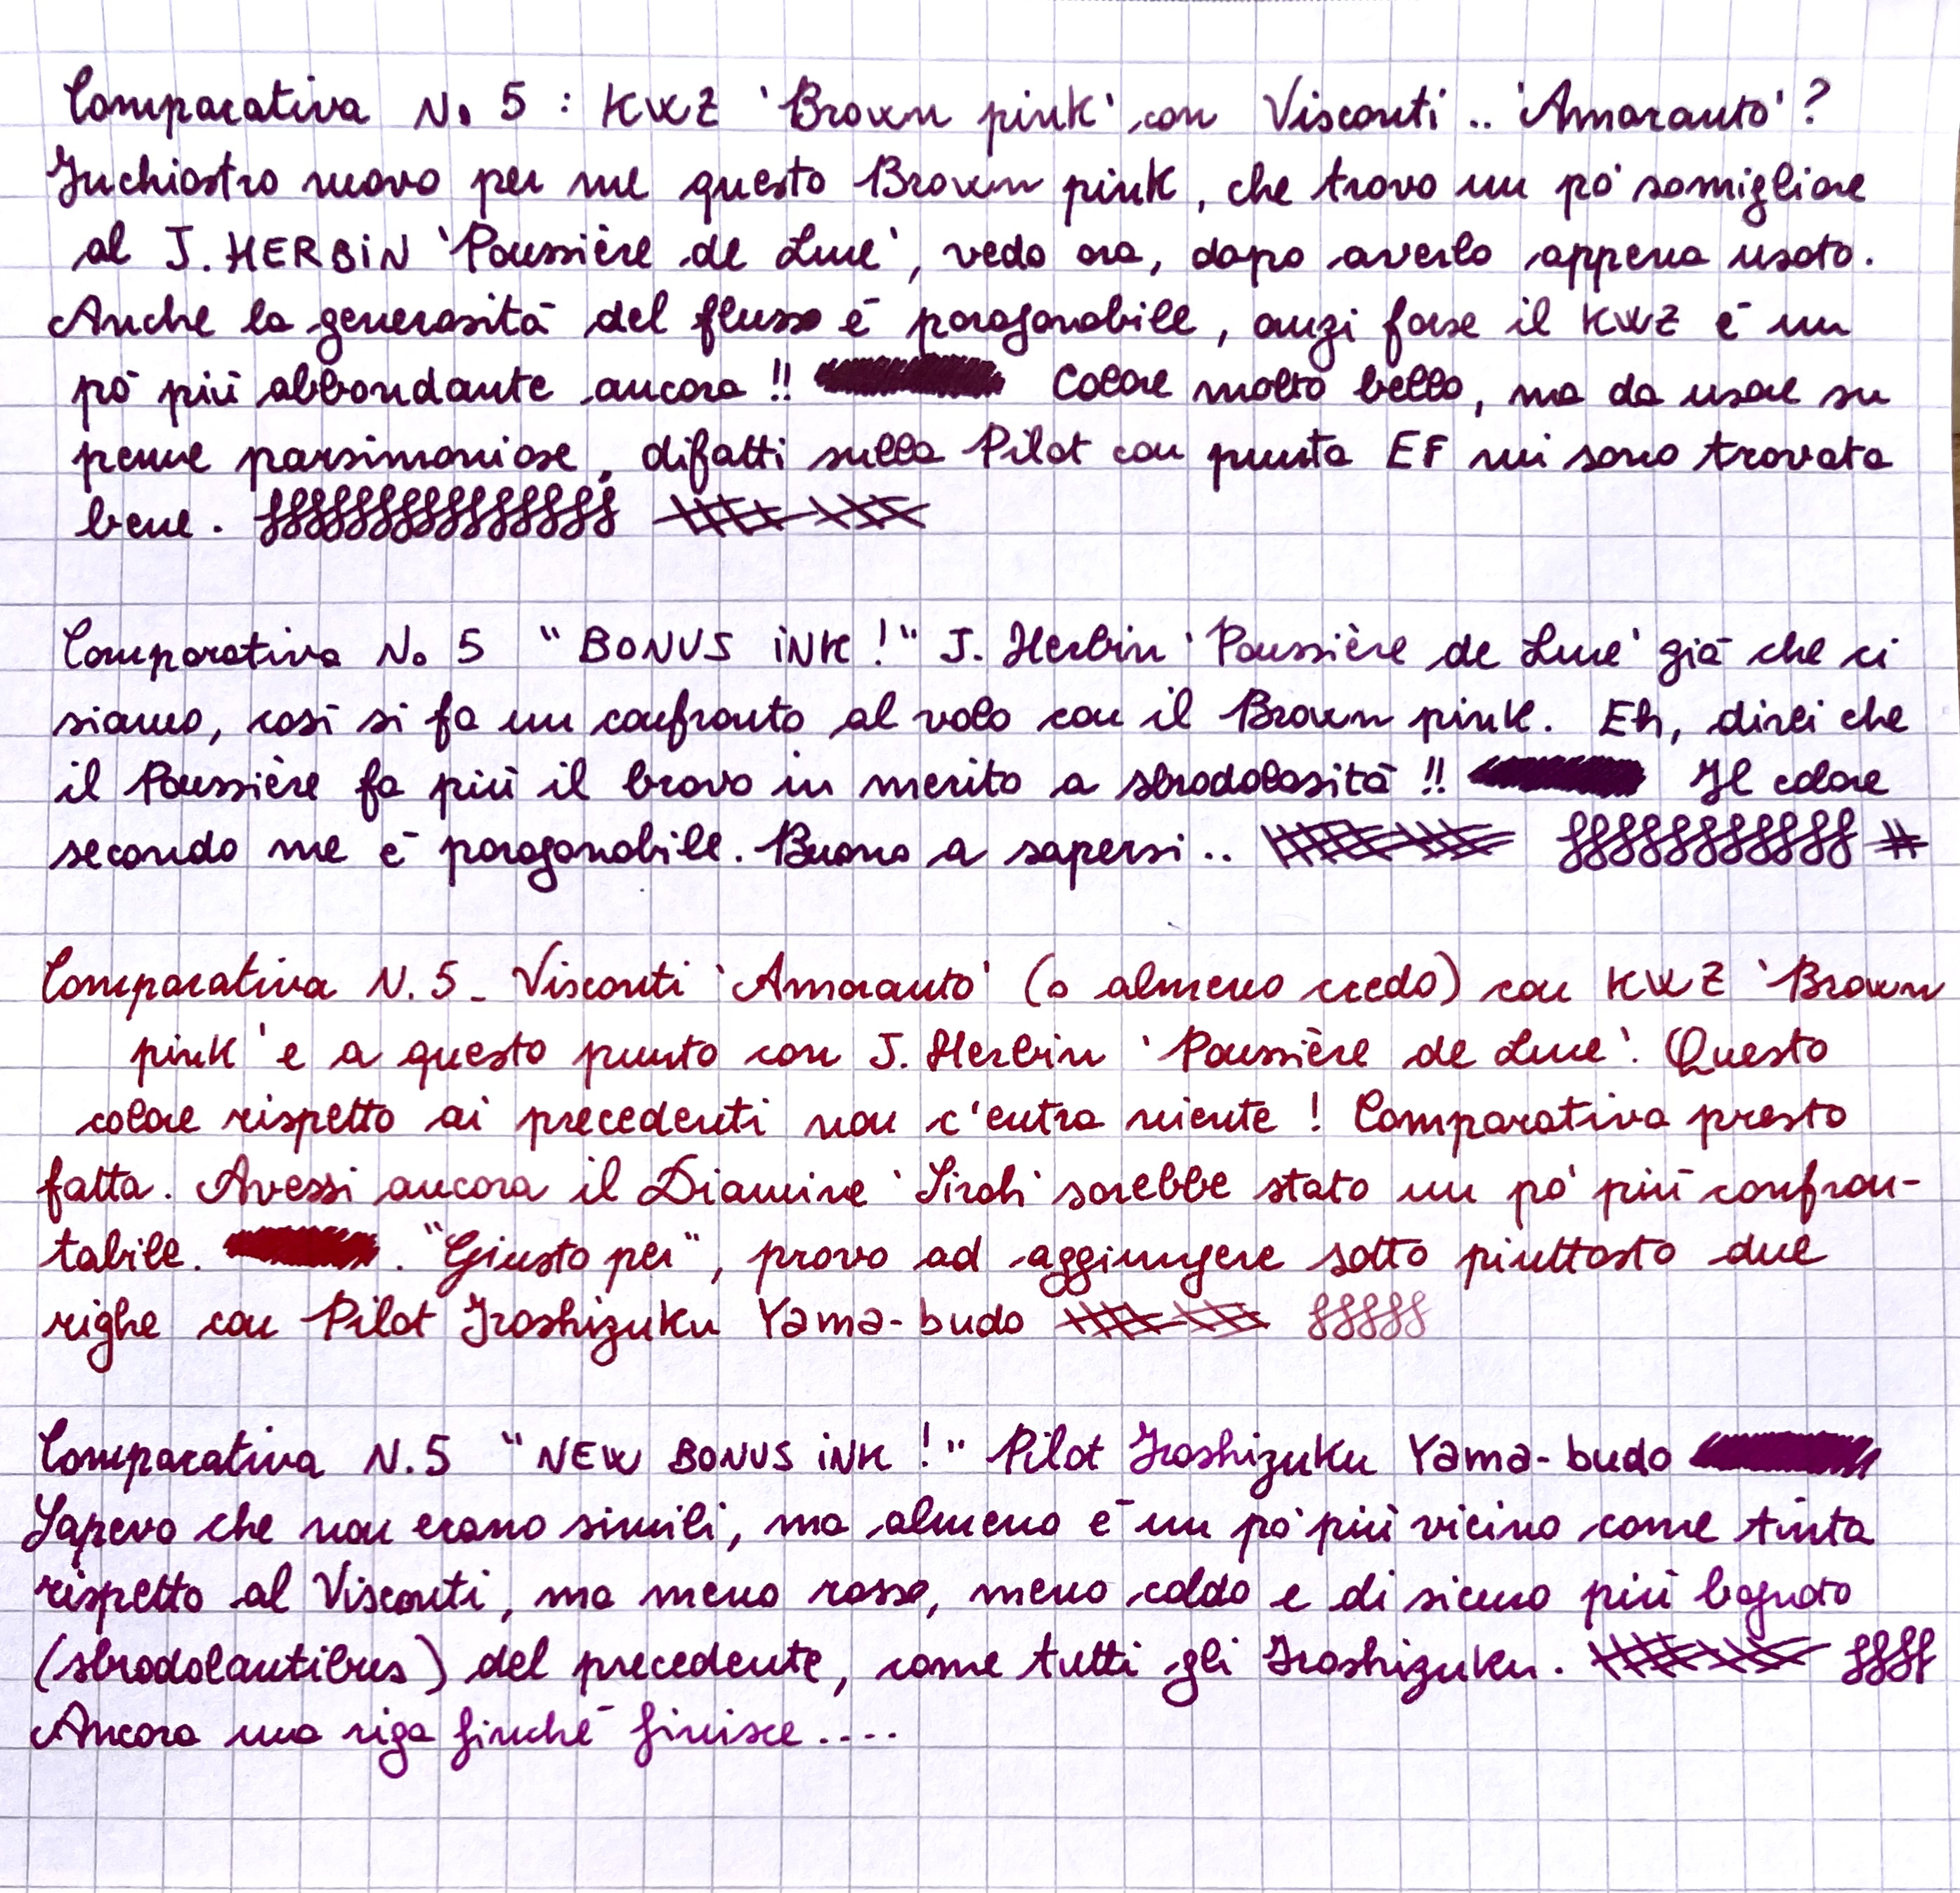 Comparativa No 5 : KWZ 'Brown pink' con Visconti .. 'Amaranto'?
Inchiostro nuovo per me questo Brown pink, che trovo un pò somigliare
al J. HERBIN 'Poussière de Lune', vedo ora, dopo averlo appena usato.
Anche la generosità del flusso è paragonabile, anzi forse il KWZ è un
pò più abbondante ancora !! Colore molto bello, ma da usare su
penne parsimoniose, difatti sulla Pilot con punta EF mi sono trovata
bene.
Comparativa No 5 "BONUS INK !" J. Herbin 'Poussière de Lune' già che ci
siamo, così si fa un confronto al volo con il Brown pink. Eh, direi che
il Poussière fa più il bravo in merito a sbrodolosità !! Il colore
secondo me è paragonabile. Buono a sapersi ..
Comparativa N. 5 - Visconti 'Amaranto' (o almeno credo) con KWZ 'Brown
pink' e a questo punto con J. Herbin 'Poussière de Lune'. Questo
colore rispetto ai precedenti non c'entra niente ! Comparativa presto
fatta. Avessi ancora il Diamine 'Sirah' sarebbe stato un pò più confron-
tabile. . "Giusto per", provo ad aggiungere sotto piuttosto due
righe con Pilot Iroshizuku Yama-budo
Comparativa N.5 "NEW BONUS INK !" Pilot Iroshizuku Yama-budo
Sapevo che non erano simili, ma almeno è un pò più vicino come tinta
rispetto al Visconti, ma meno rosso, meno caldo e di sicuro più bagnato
(sbrodolantibus) del precedente, come tutti gli Iroshizuku.
Ancora una riga finché finisce ....